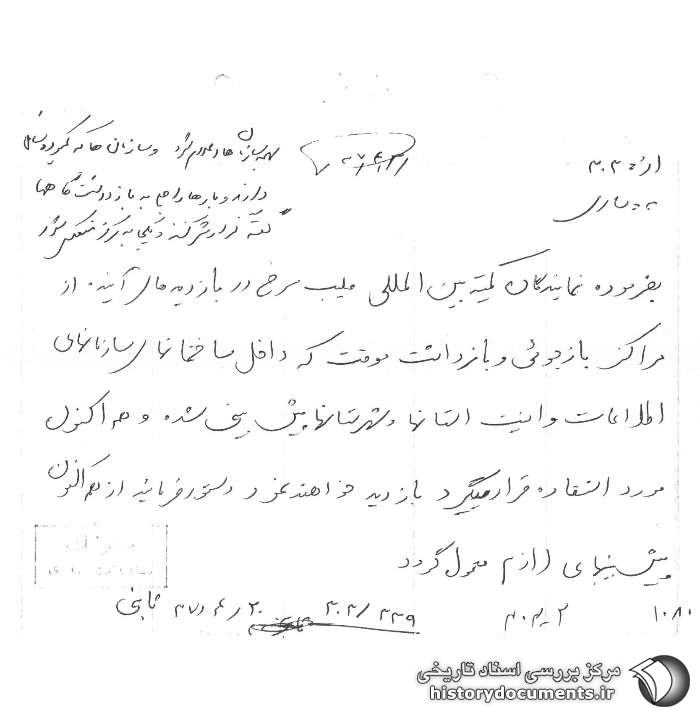 از: ۳۰۳
به: ساری
کلیه سازمان ها و
دارند و بارها راجع به بازداشتگاهها
گفته گزارش کنند و یکجا به مرکز منعکس شود
بفرموده نمایندگان کمیته بین المللی صلیب سرخ در بازدیدهای آینده از
مراکز بازجوئی و بازداشت موقت که داخل ساختمانهای سازمانهای
اطلاعات و امنیت استانها و شهرستانها پیش بینی شده و هم اکنون
مورد استفاده قرار میگیرد بازدید خواهند نمود دستور فرمائید از هم اکنون
پیش بینیهای لازم معمول گردد
۱۰۸۰ ۳۰۳/۲۳۹ ۳۷/۶/۲۰ ثابتی
مرکز بررسی اسناد تاریخی
historydocuments.ir